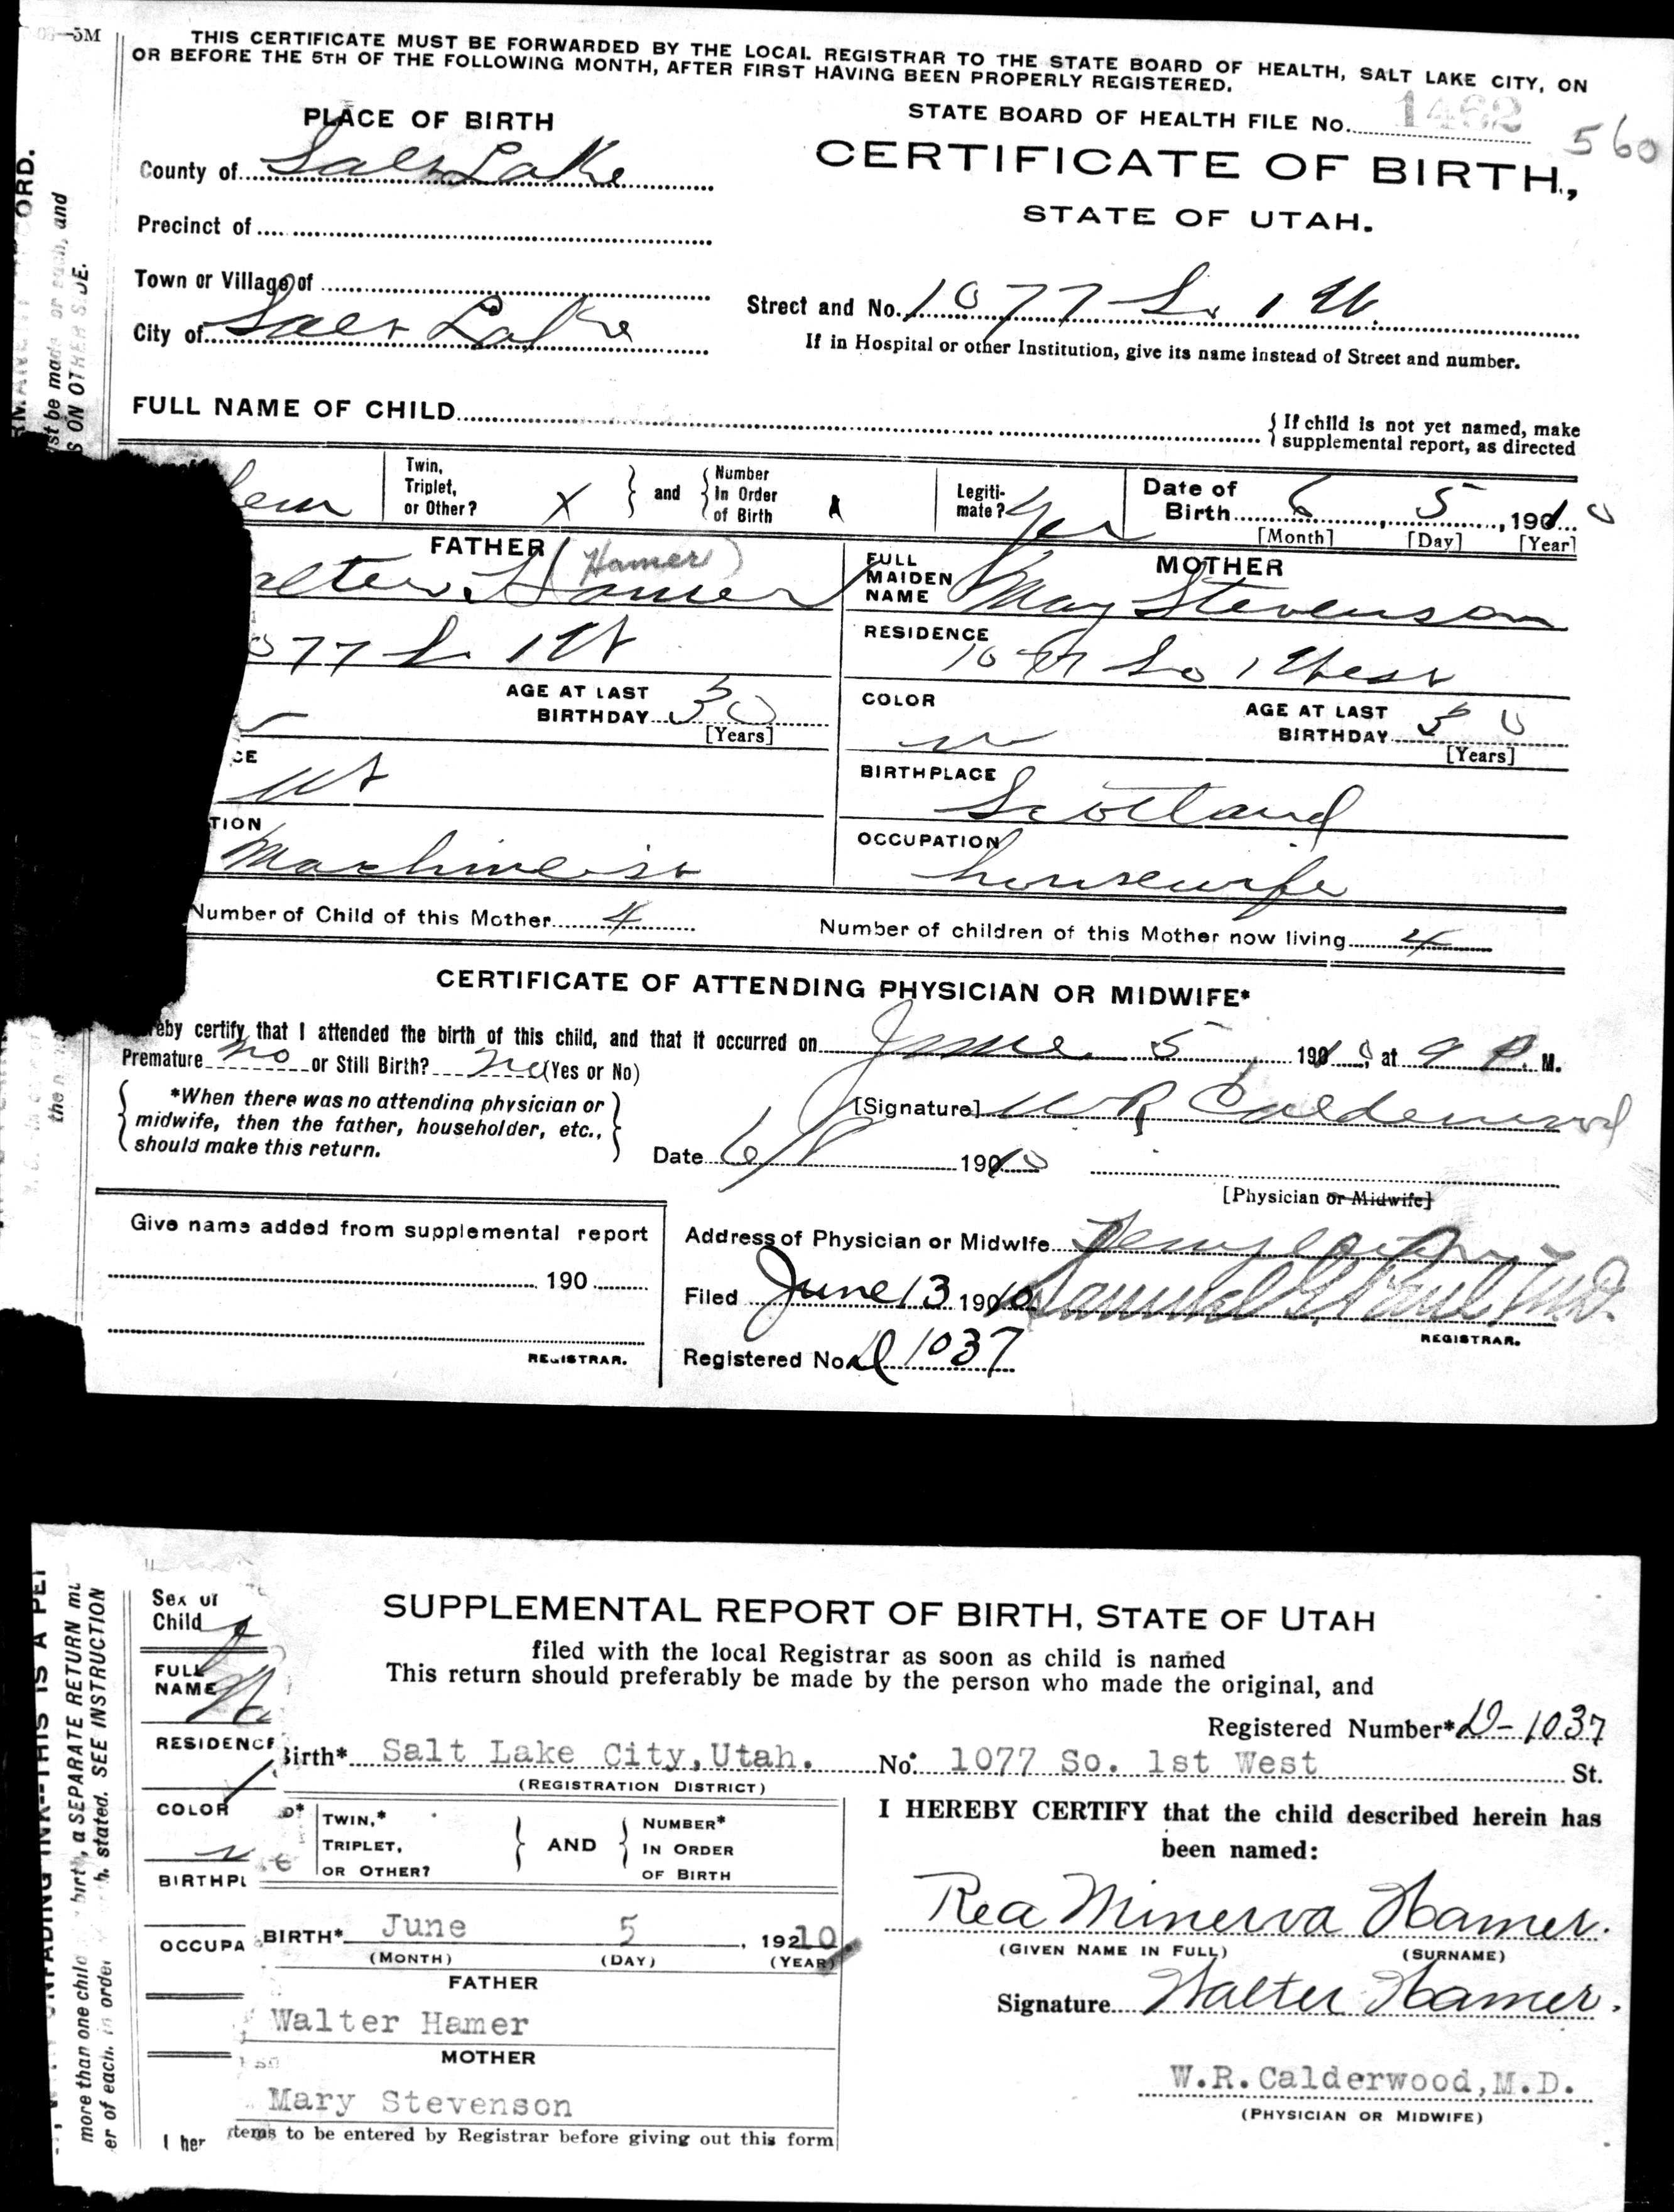 09—5M
THIS CERTIFICATE MUST BE FORWARDED BY THE LOCAL REGISTRAR TO THE STATE BOARD OF HEALTH, SALT LAKE CITY, ON
OR BEFORE THE 5TH OF THE FOLLOWING MONTH, AFTER FIRST HAVING BEEN PROPERLY REGISTERED.
PLACE OF BIRTH
STATE BOARD OF HEALTH FILE No. 1462 560
County of Salt Lake
CERTIFICATE OF BIRTH,
STATE OF UTAH.
Precinct of
Town or Village of
Street and No. 1077 So 1 W.
City of Salt Lake
If in Hospital or other Institution, give its name instead of Street and number.
FULL NAME OF CHILD
{ If child is not yet named, make
supplemental report, as directed
Twin,
Triplet,
or Other? X } and { Number
In Order
of Birth
Legiti-
mate? Yes
Date of
Birth 6, 5, 1910
[Month] [Day] [Year]
FATHER (Hamer)
alter Hamer
FULL
MAIDEN
NAME
MOTHER
May Stevenson
077 So 1 W
RESIDENCE
1077 So 1 West
AGE AT LAST
BIRTHDAY 30
[Years]
COLOR
w
AGE AT LAST
BIRTHDAY 30
[Years]
CE
Ut
BIRTHPLACE
Scotland
TION
Machineist
OCCUPATION
housewife
Number of Child of this Mother 4
Number of children of this Mother now living 4
CERTIFICATE OF ATTENDING PHYSICIAN OR MIDWIFE*
eby certify that I attended the birth of this child, and that it occurred on June 5 1910, at 9 P. M.
Premature no or Still Birth? no (Yes or No)
{ *When there was no attending physician or
midwife, then the father, householder, etc.,
should make this return. }
[Signature] W R Calderwood
Date 6/8 1910
[Physician or Midwife]
Give name added from supplemental report
190
REGISTRAR.
Address of Physician or Midwife
Filed June 13 1910 Samuel G. Paul, M.D.
REGISTRAR.
Registered No. D 1037
Sex of
Child f
SUPPLEMENTAL REPORT OF BIRTH, STATE OF UTAH
filed with the local Registrar as soon as child is named
This return should preferably be made by the person who made the original, and
FULL
NAME
Registered Number* D-1037
RESIDENCE
Birth* Salt Lake City, Utah. No. 1077 So. 1st West St.
(REGISTRATION DISTRICT)
COLOR
TWIN,*
TRIPLET,
OR OTHER? } AND { NUMBER*
IN ORDER
OF BIRTH
I HEREBY CERTIFY that the child described herein has
been named:
BIRTHPL
Rea Minerva Hamer.
(GIVEN NAME IN FULL) (SURNAME)
OCCUPA
BIRTH* June 5, 19210.
(MONTH) (DAY) (YEAR)
FATHER
Walter Hamer
Signature Walter Hamer.
MOTHER
Mary Stevenson
W.R. Calderwood, M.D.
(PHYSICIAN OR MIDWIFE)
I her
items to be entered by Registrar before giving out this form
ON OTHER SIDE.
UNFADING INK--THIS IS A PE
more than one child birth, a SEPARATE RETURN mu
er of each, in order h. stated. SEE INSTRUCTION